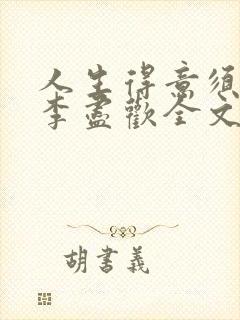 人生得意須
李盡歡全文
胡書義